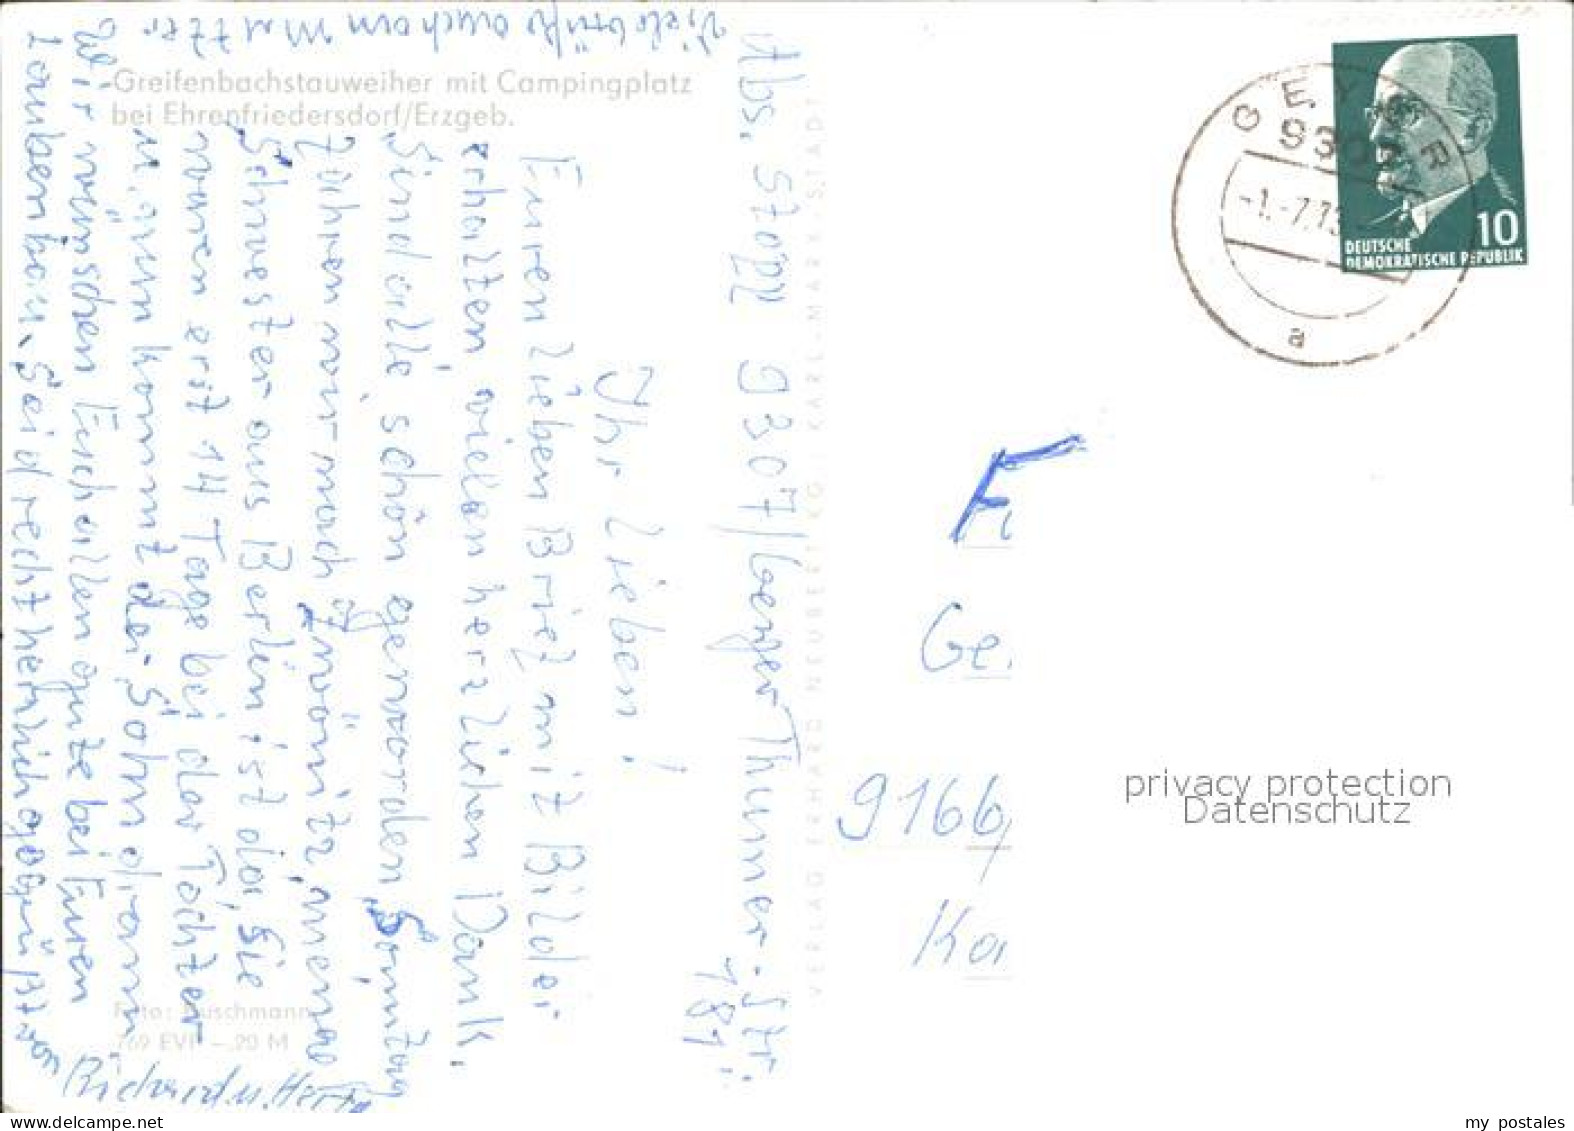 Greifenbachstauweiher mit Campingplatz
bei Ehrenfriedersdorf/Erzgeb.
Abs. Stopp 9307/Geyer Thumer-Str.
181
Ihr Lieben!
Euren lieben Brief mit Bilder
erhalten vielen herzlichen Dank.
Sind alle schön geworden, Sonntag
fuhren wir nach Zwönitz, meine
Schwester aus Berlin ist da, Sie
waren erst 14 Tage bei der Tochter
u. nun kommt der Sohn dran.
Wir wünschen Euch allen gute bei Euren
Laubenbau. Seid recht herzlich gegrüßt von
Richard u. Herta
Viele Grüße auch an Mutter
Foto: Ruschmann
769 EVP -.20 M
VERLAG ERHARD NEUBERT KG KARL-MARX-STADT
GEYER
9307
-1.-7.73
a
10
DEUTSCHE
DEMOKRATISCHE REPUBLIK
F
Ge.
9166
Ka
privacy protection
Datenschutz
my postales